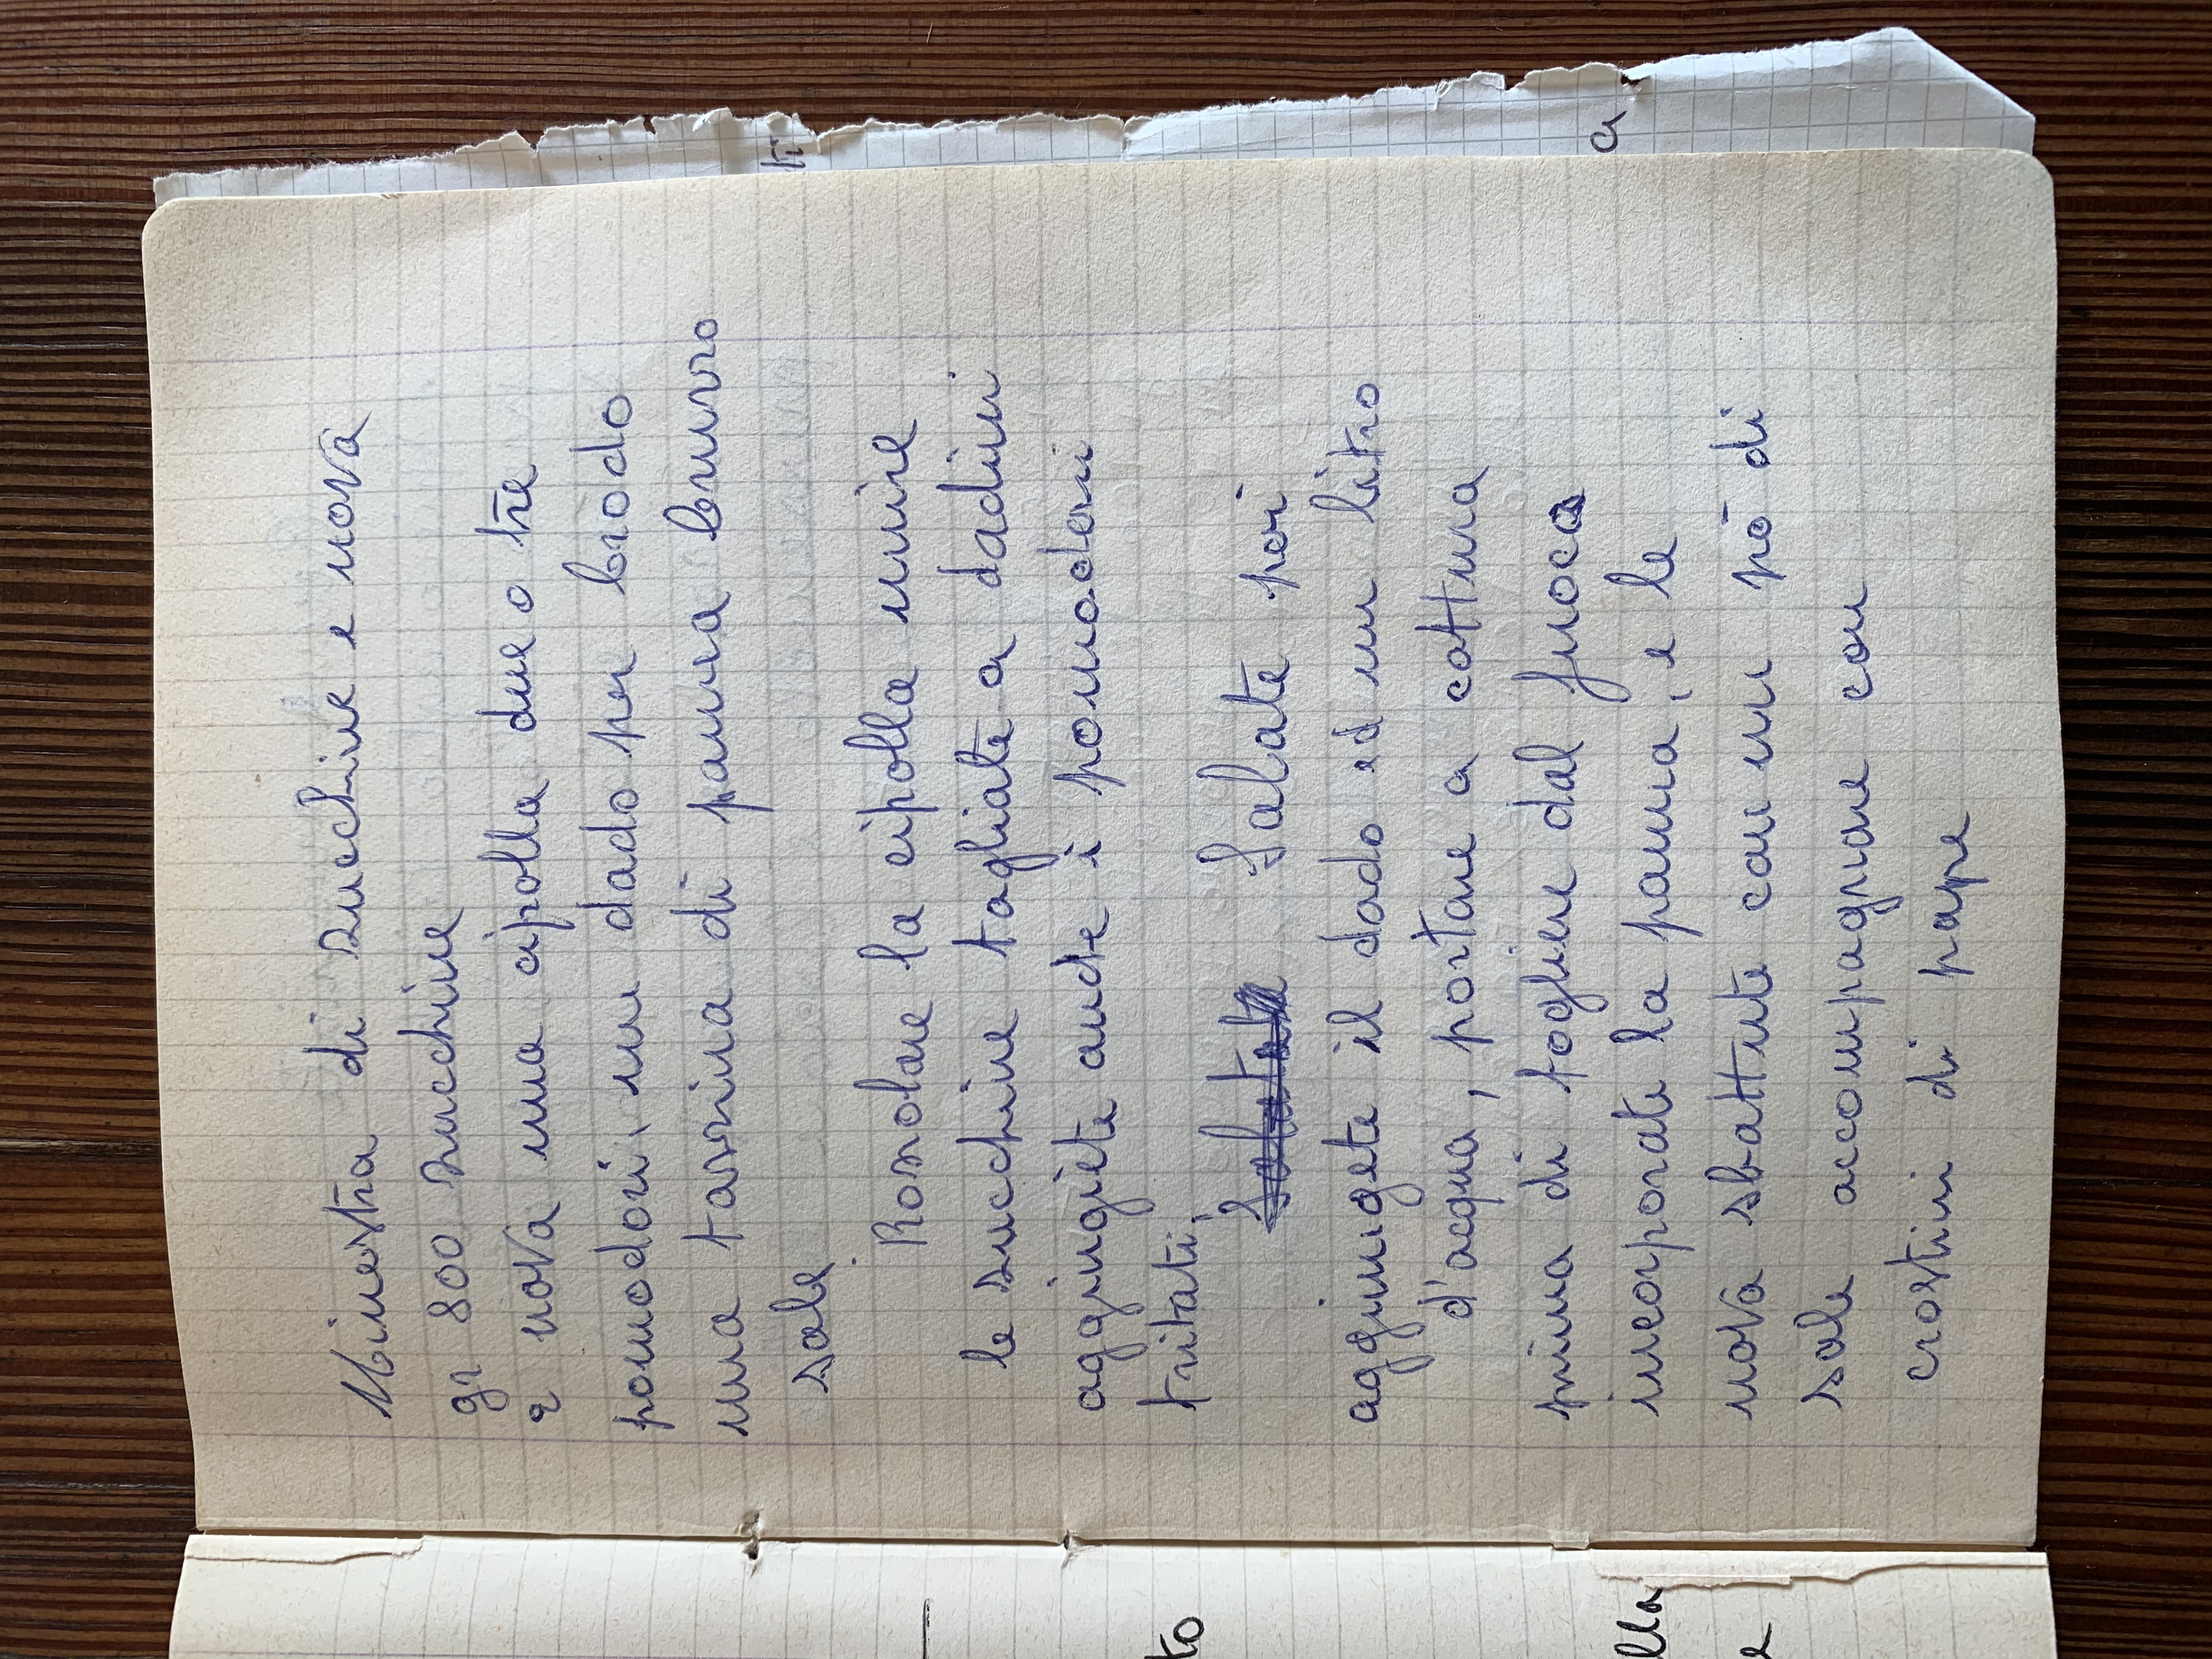 Minestra di zucchine e uova
gr 800 zucchine
2 uova una cipolla due o tre
pomodori, un dado per brodo
una tazzina di panna burro
sale
Rosolare la cipolla unire
le zucchine tagliate a dadini
aggiungiete anche i pomodori
tritati,
Salate poi
aggiungete il dado ed un litro
d'acqua, portare a cottura
prima di togliere dal fuoco
incorporate la panna, e le
uova sbattute con un pò di
sale accompagnare con
crostini di pane
to
lla
e
ti
a